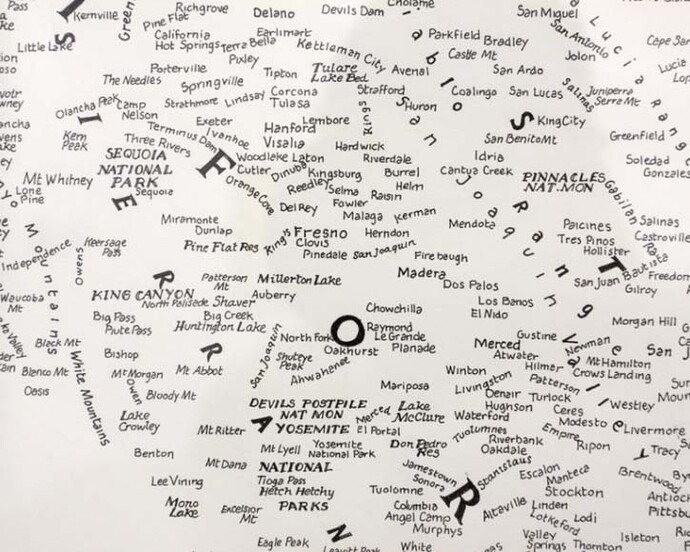 Pass
Kernville
Pine Flat
Richgrove
Delano
Devils Dam
Cholame
San Miguel
Green
California
Hot Springs
Terra Bella
Earlimart
Kettleman City
Parkfield
Bradley
San Antonio
Lucia
Range
Cape San
Little Lake
Pixley
Castle Mt
Jolon
Porterville
Tipton
Tulare
Lake Bed
Avenal
San Ardo
Lucia
The Needles
Springville
Corcona
Strafford
Coalingo
San Lucas
Salinas
Juniperra
Serra Mt
Olancha Peak
Camp
Nelson
Strathmore
Lindsay
Tulasa
Kings
Huron
S
King City
Greenfield
Exeter
Lembore
Terminus Dam
Ivanhoe
Hanford
San Benito Mt
Kern
Peak
Three Rivers
Visalia
Hardwick
Soledad
SEQUOIA
NATIONAL
PARK
F
Woodlake
Laton
Riverdale
Idria
Gonzales
Mt Whitney
Cutler
Dinuba
Kingsburg
Burrel
Cantua Creek
PINNACLES
NAT.MON
Lone
Pine
Sequoia
I
E
Orange Cove
Reedley
Selma
Raisin
Helm
Gabilan
Fowler
Miramonte
Del Rey
Malaga
Kerman
Mendota
Paicines
Salinas
Dunlap
King's
Fresno
Herndon
Tres Pinos
Castroville
Independence
Keersage
Pass
Pine Flat Res
Clovis
Hollister
Pinedale
San Joaquin
Firebaugh
T
San Juan Bautista
Freedom
Owens
Mountains
Patterson
Mt
Millerton Lake
Madera
Dos Palos
Gilroy
Waucoba
Mt
KING CANYON
R
North Palisade
Shaver
Auberry
Los Banos
Big Pass
Big Creek
Chowchilla
El Nido
Morgan Hill
Piute Pass
Huntington Lake
O
Raymond
San Joaquin
North Fork
Le Grande
Gustine
Black Mt
Oakhurst
Planade
Merced
Newman
San J
Bishop
R
Shuteye
Peak
Atwater
Mt Hamilton
Blanco Mt
White Mountains
McMorgan
Mt Abbot
Ahwahenee
Winton
Hilmer
Crows Landing
Oasis
Owen
Mariposa
Livingston
Patterson
Bloody Mt
Denair
Turlock
DEVILS POSTPILE
NAT MON
Merced
Lake
McClure
Hughson
Ceres
Westley
Lake
Crowley
A
YOSEMITE
El Portal
Waterford
Modesto
Livermore
San Joaquin Valley
Diablo Range
Mt Ritter
Tuolumnes
Empire
Yosemite
National Park
Don Pedro
Res
Riverbank
Ripon
Benton
Mt Lyell
Oakdale
Tracy
Mt Dana
NATIONAL
Jamestown
Stanislaus
Escalon
Brentwood
Sonora
Manteca
Lee Vining
Tioga Pass
Hetch Hetchy
Tuolomne
R
Stockton
Antioc
Mono
Lake
Excelsior
Mt
PARKS
Columbia
Altaville
Linden
Angel Camp
Lotkeford
Lodi
Pittsbu
N
Murphys
Valley
Springs
Isleton
Eagle Peak
Leavitt Peak
White
Thornton